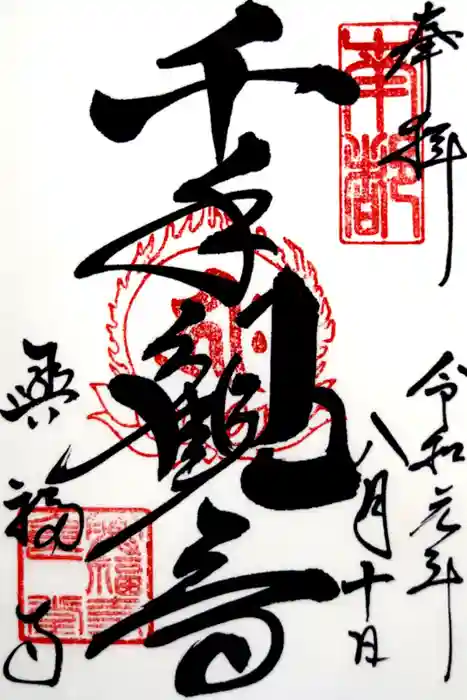 奉拝
南都
令和元年
八月十日
千手観音
興福寺